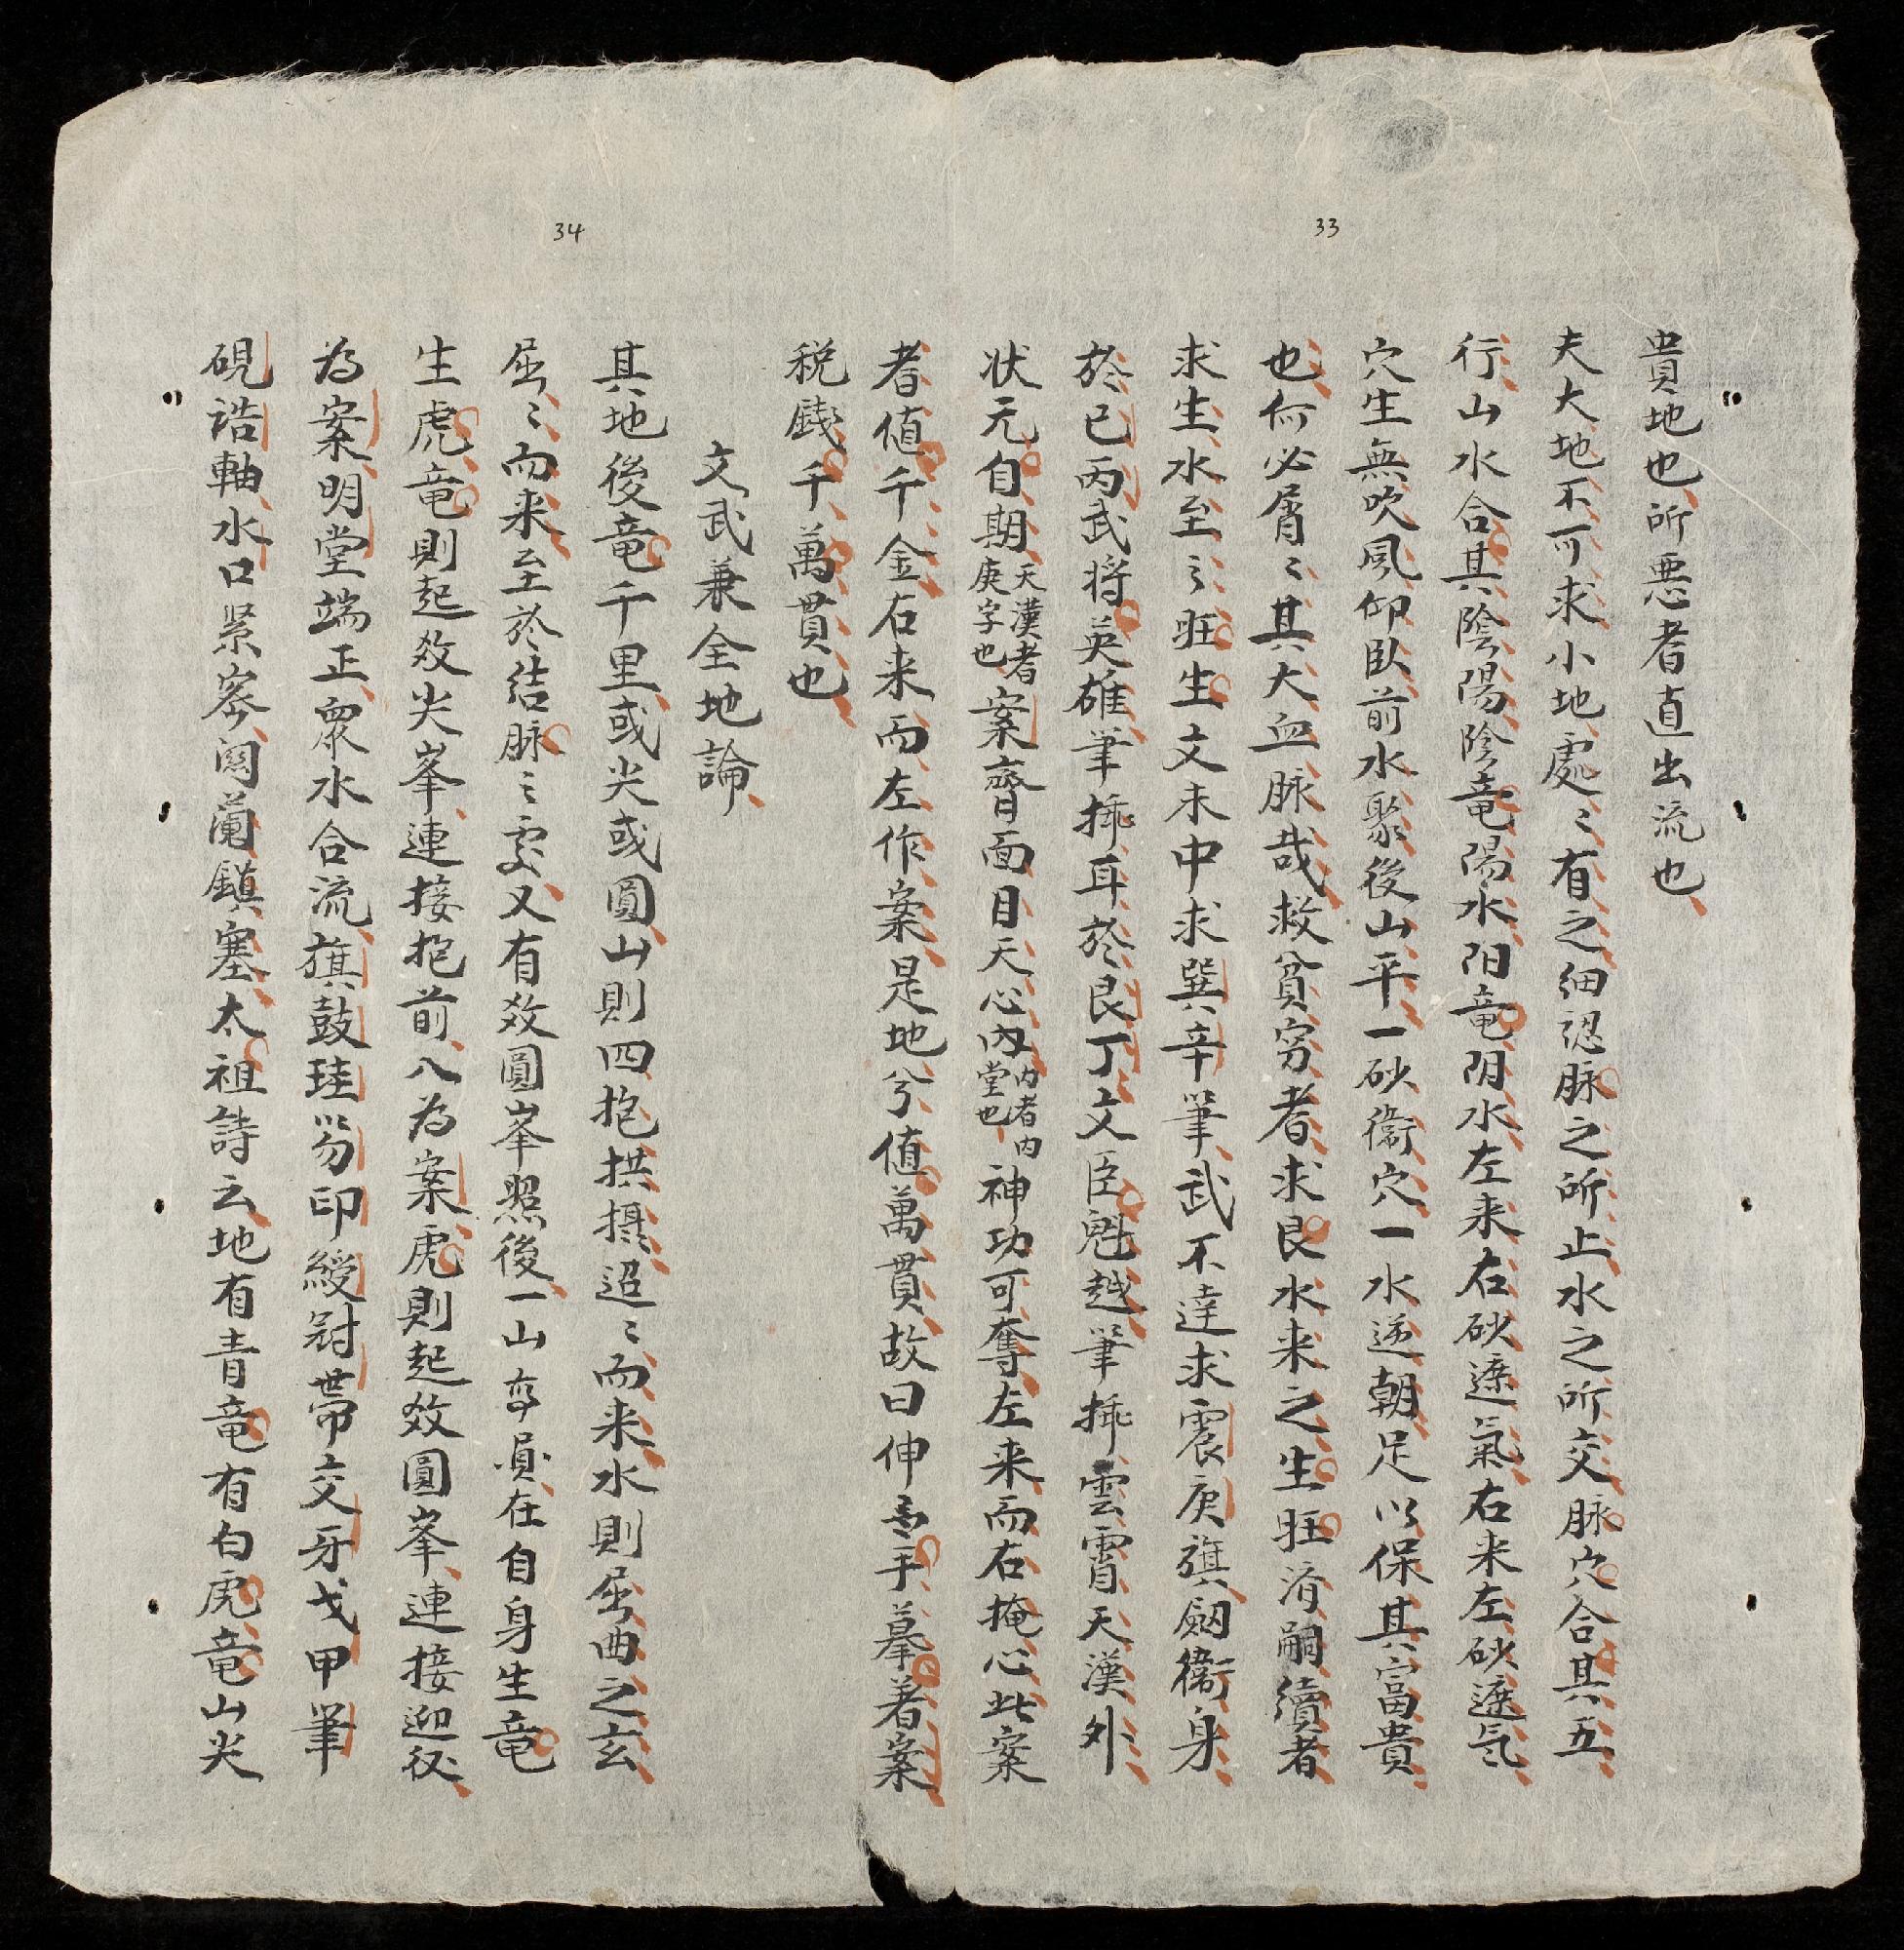 33
貴地也所悪者直出流也
夫大地不可求小地處〻有之細認脉之所止水之所交脉穴合其五
行山水合其陰陽陰竜陽水阳竜阴水左来右砂遮氣右来左砂遮気
穴生無吹風仰臥前水聚後山平一砂衞穴一水逆朝足以保其富貴
也何必屑〻其大血脉哉救貧穷者求艮水来之生旺淯嗣續者
求生水至之旺生文未中求巽辛筆武不達求震庚旗劔衞身
於已丙武将英雄筆挿耳於艮丁文臣魁越筆挿雲霄天漢外
状元自期天漢者庚字也案齊面目天心内内者内堂也神功可奪左来而右掩心此案
者値千金右来而左作案是地兮値萬貫故曰伸手摹着案
税銭千萬貫也
34
文武兼全地論
其地後竜千里或尖或圓山則四抱拱摄迢〻而来水則屈曲之玄
屈〻而来至於结脉〻䖏又有效圓峯照後一山在自身生竜
生虎竜則起效尖峯連接抱前八为案虎則起效圓峯連接迎
为案明堂端正眾水合流旗鼓珪笏印綬尉帶交牙戈甲筆
硯誥軸水口紧宻関蘭鎮塞太祖詩云地有青竜有白虎竜山尖